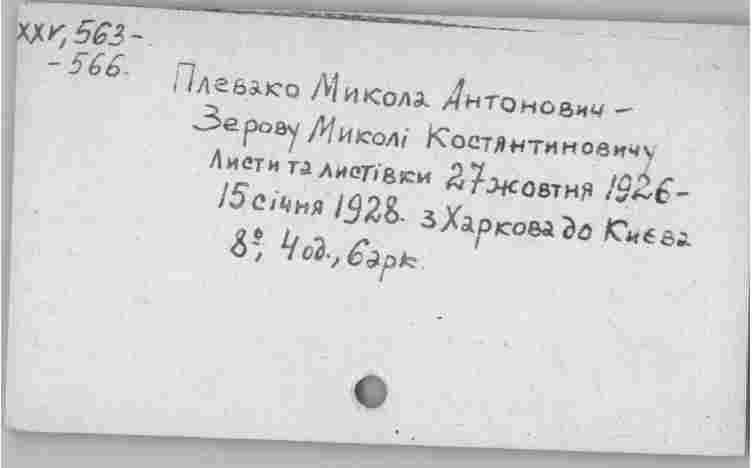 XXV, 563-
-566.
Плевако Микола Антонович –
Зерову Миколі Костянтиновичу
Листи та листівки 27 жовтня 1926-
15 січня 1928. з Харкова до Києва
8°, 4 од., 6 арк.